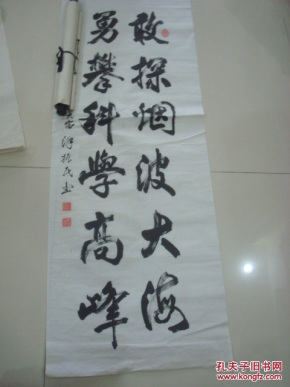 敢探烟波大海
勇攀科學高峰
孔夫子旧书网